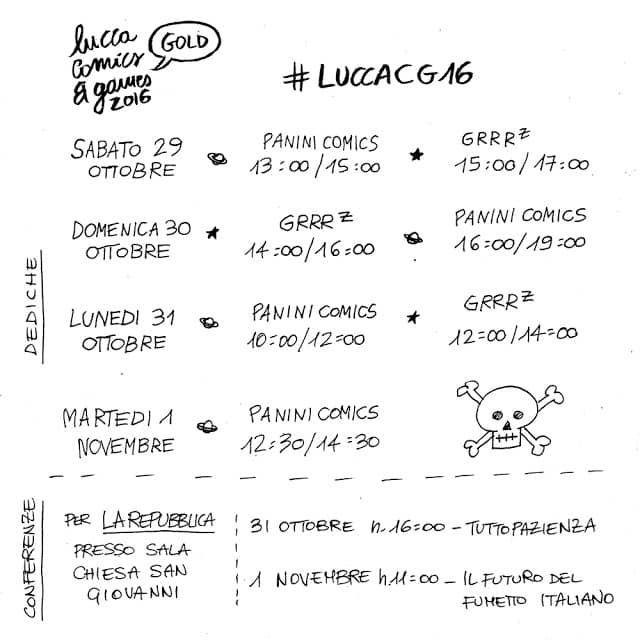 lucca
comics
& games
2016
GOLD
#LUCCACG16
DEDICHE
SABATO 29
OTTOBRE
PANINI COMICS
13:00/15:00
GRRRZ
15:00/17:00
DOMENICA 30
OTTOBRE
GRRRZ
14:00/16:00
PANINI COMICS
16:00/19:00
LUNEDI 31
OTTOBRE
PANINI COMICS
10:00/12:00
GRRRZ
12:00/14:00
MARTEDI 1
NOVEMBRE
PANINI COMICS
12:30/14:30
CONFERENZE
PER LA REPUBBLICA
PRESSO SALA
CHIESA SAN
GIOVANNI
31 OTTOBRE h.16:00 - TUTTOPAZIENZA
1 NOVEMBRE h11:00 - IL FUTURO DEL
FUMETTO ITALIANO